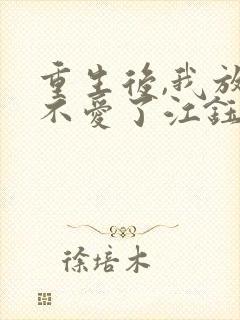 重生後,我放
不愛了江鈺
徐培木